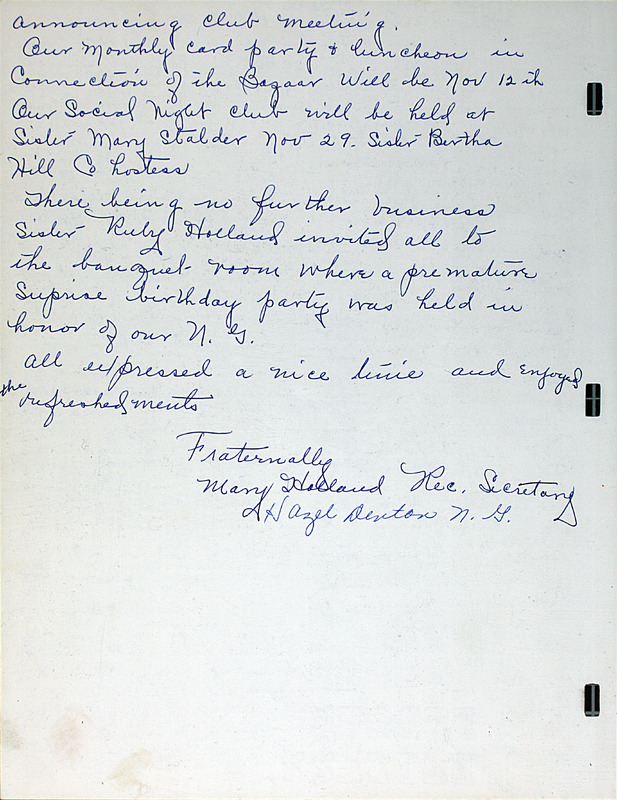 announcing club meeting.
Our Monthly card party & luncheon in
Connection of the Bazaar Will be Nov 12 th
Our Social Night club will be held at
Sister Mary Stalder Nov 29. Sister Bertha
Hill Co hostess
There being no further business
Sister Ruby Holland invited all to
the banquet room where a premature
Suprise birthday party was held in
honor of our N. G.
all expressed a nice time and enjoyed
the refreshedments
Fraternally
Mary Holland Rec. Secretary
Hazel Denton N. G.